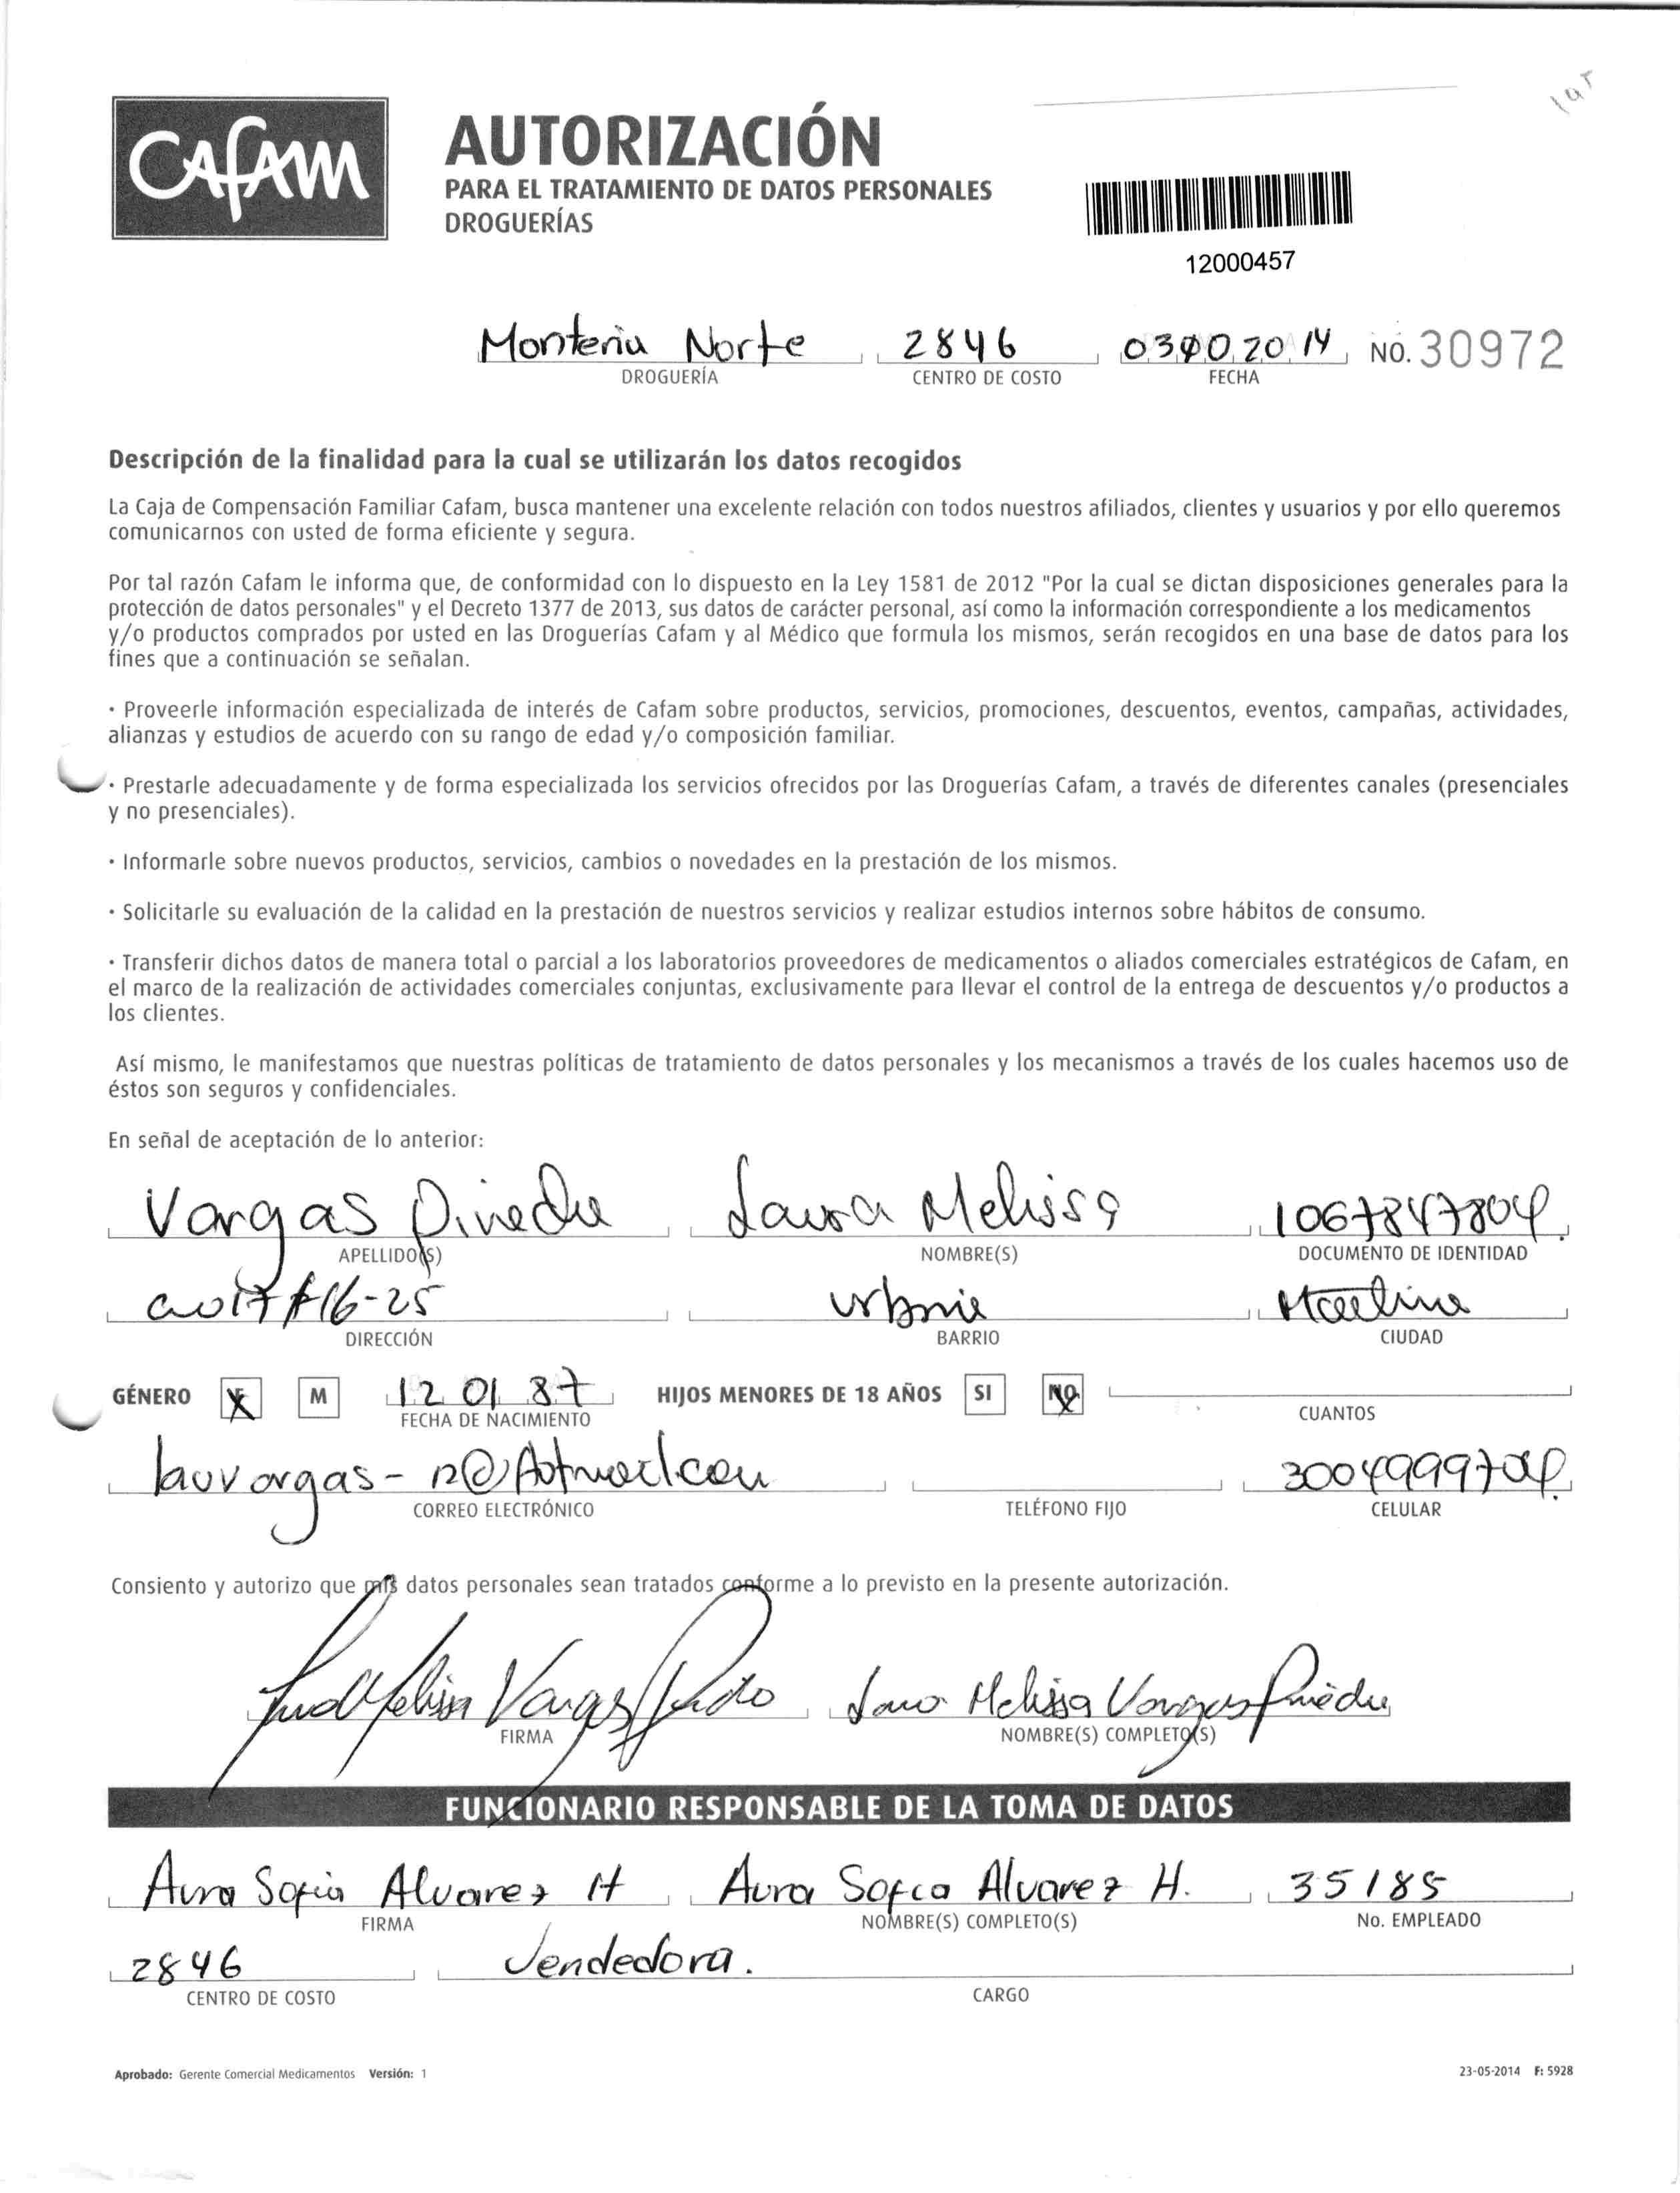 CAFAM
AUTORIZACIÓN
PARA EL TRATAMIENTO DE DATOS PERSONALES
DROGUERÍAS
12000457
Monteria Norte 2846 14 NO. 30972
DROGUERÍA CENTRO DE COSTO FECHA
Descripción de la finalidad para la cual se utilizarán los datos recogidos
La Caja de Compensación Familiar Cafam, busca mantener una excelente relación con todos nuestros afiliados, clientes y usuarios y por ello queremos
comunicarnos con usted de forma eficiente y segura.
Por tal razón Cafam le informa que, de conformidad con lo dispuesto en la Ley 1581 de 2012 "Por la cual se dictan disposiciones generales para la
protección de datos personales" y el Decreto 1377 de 2013, sus datos de carácter personal, así como la información correspondiente a los medicamentos
y/o productos comprados por usted en las Droguerías Cafam y al Médico que formula los mismos, serán recogidos en una base de datos para los
fines que a continuación se señalan.
· Proveerle información especializada de interés de Cafam sobre productos, servicios, promociones, descuentos, eventos, campañas, actividades,
alianzas y estudios de acuerdo con su rango de edad y/o composición familiar.
· Prestarle adecuadamente y de forma especializada los servicios ofrecidos por las Droguerías Cafam, a través de diferentes canales (presenciales
y no presenciales).
· Informarle sobre nuevos productos, servicios, cambios o novedades en la prestación de los mismos.
· Solicitarle su evaluación de la calidad en la prestación de nuestros servicios y realizar estudios internos sobre hábitos de consumo.
· Transferir dichos datos de manera total o parcial a los laboratorios proveedores de medicamentos o aliados comerciales estratégicos de Cafam, en
el marco de la realización de actividades comerciales conjuntas, exclusivamente para llevar el control de la entrega de descuentos y/o productos a
los clientes.
Así mismo, le manifestamos que nuestras políticas de tratamiento de datos personales y los mecanismos a través de los cuales hacemos uso de
éstos son seguros y confidenciales.
En señal de aceptación de lo anterior:
Vargas Pineda Laura Melissa 1067847804
APELLIDO(S) NOMBRE(S) DOCUMENTO DE IDENTIDAD
#16-25
DIRECCIÓN BARRIO CIUDAD
GÉNERO F M 12 01 87 HIJOS MENORES DE 18 AÑOS SI NO
FECHA DE NACIMIENTO CUANTOS
lauvargas-12@hotmail.com 3004999704
CORREO ELECTRÓNICO TELÉFONO FIJO CELULAR
Consiento y autorizo que mis datos personales sean tratados conforme a lo previsto en la presente autorización.
Melissa Vargas Melissa Vargas Pineda
FIRMA NOMBRE(S) COMPLETO(S)
FUNCIONARIO RESPONSABLE DE LA TOMA DE DATOS
Aura Sofia Alvarez H Aura Sofia Alvarez H. 35185
FIRMA NOMBRE(S) COMPLETO(S) No. EMPLEADO
2846 Vendedora.
CENTRO DE COSTO CARGO
Aprobado: Gerente Comercial Medicamentos Versión: 1 23-05-2014 F: 5928